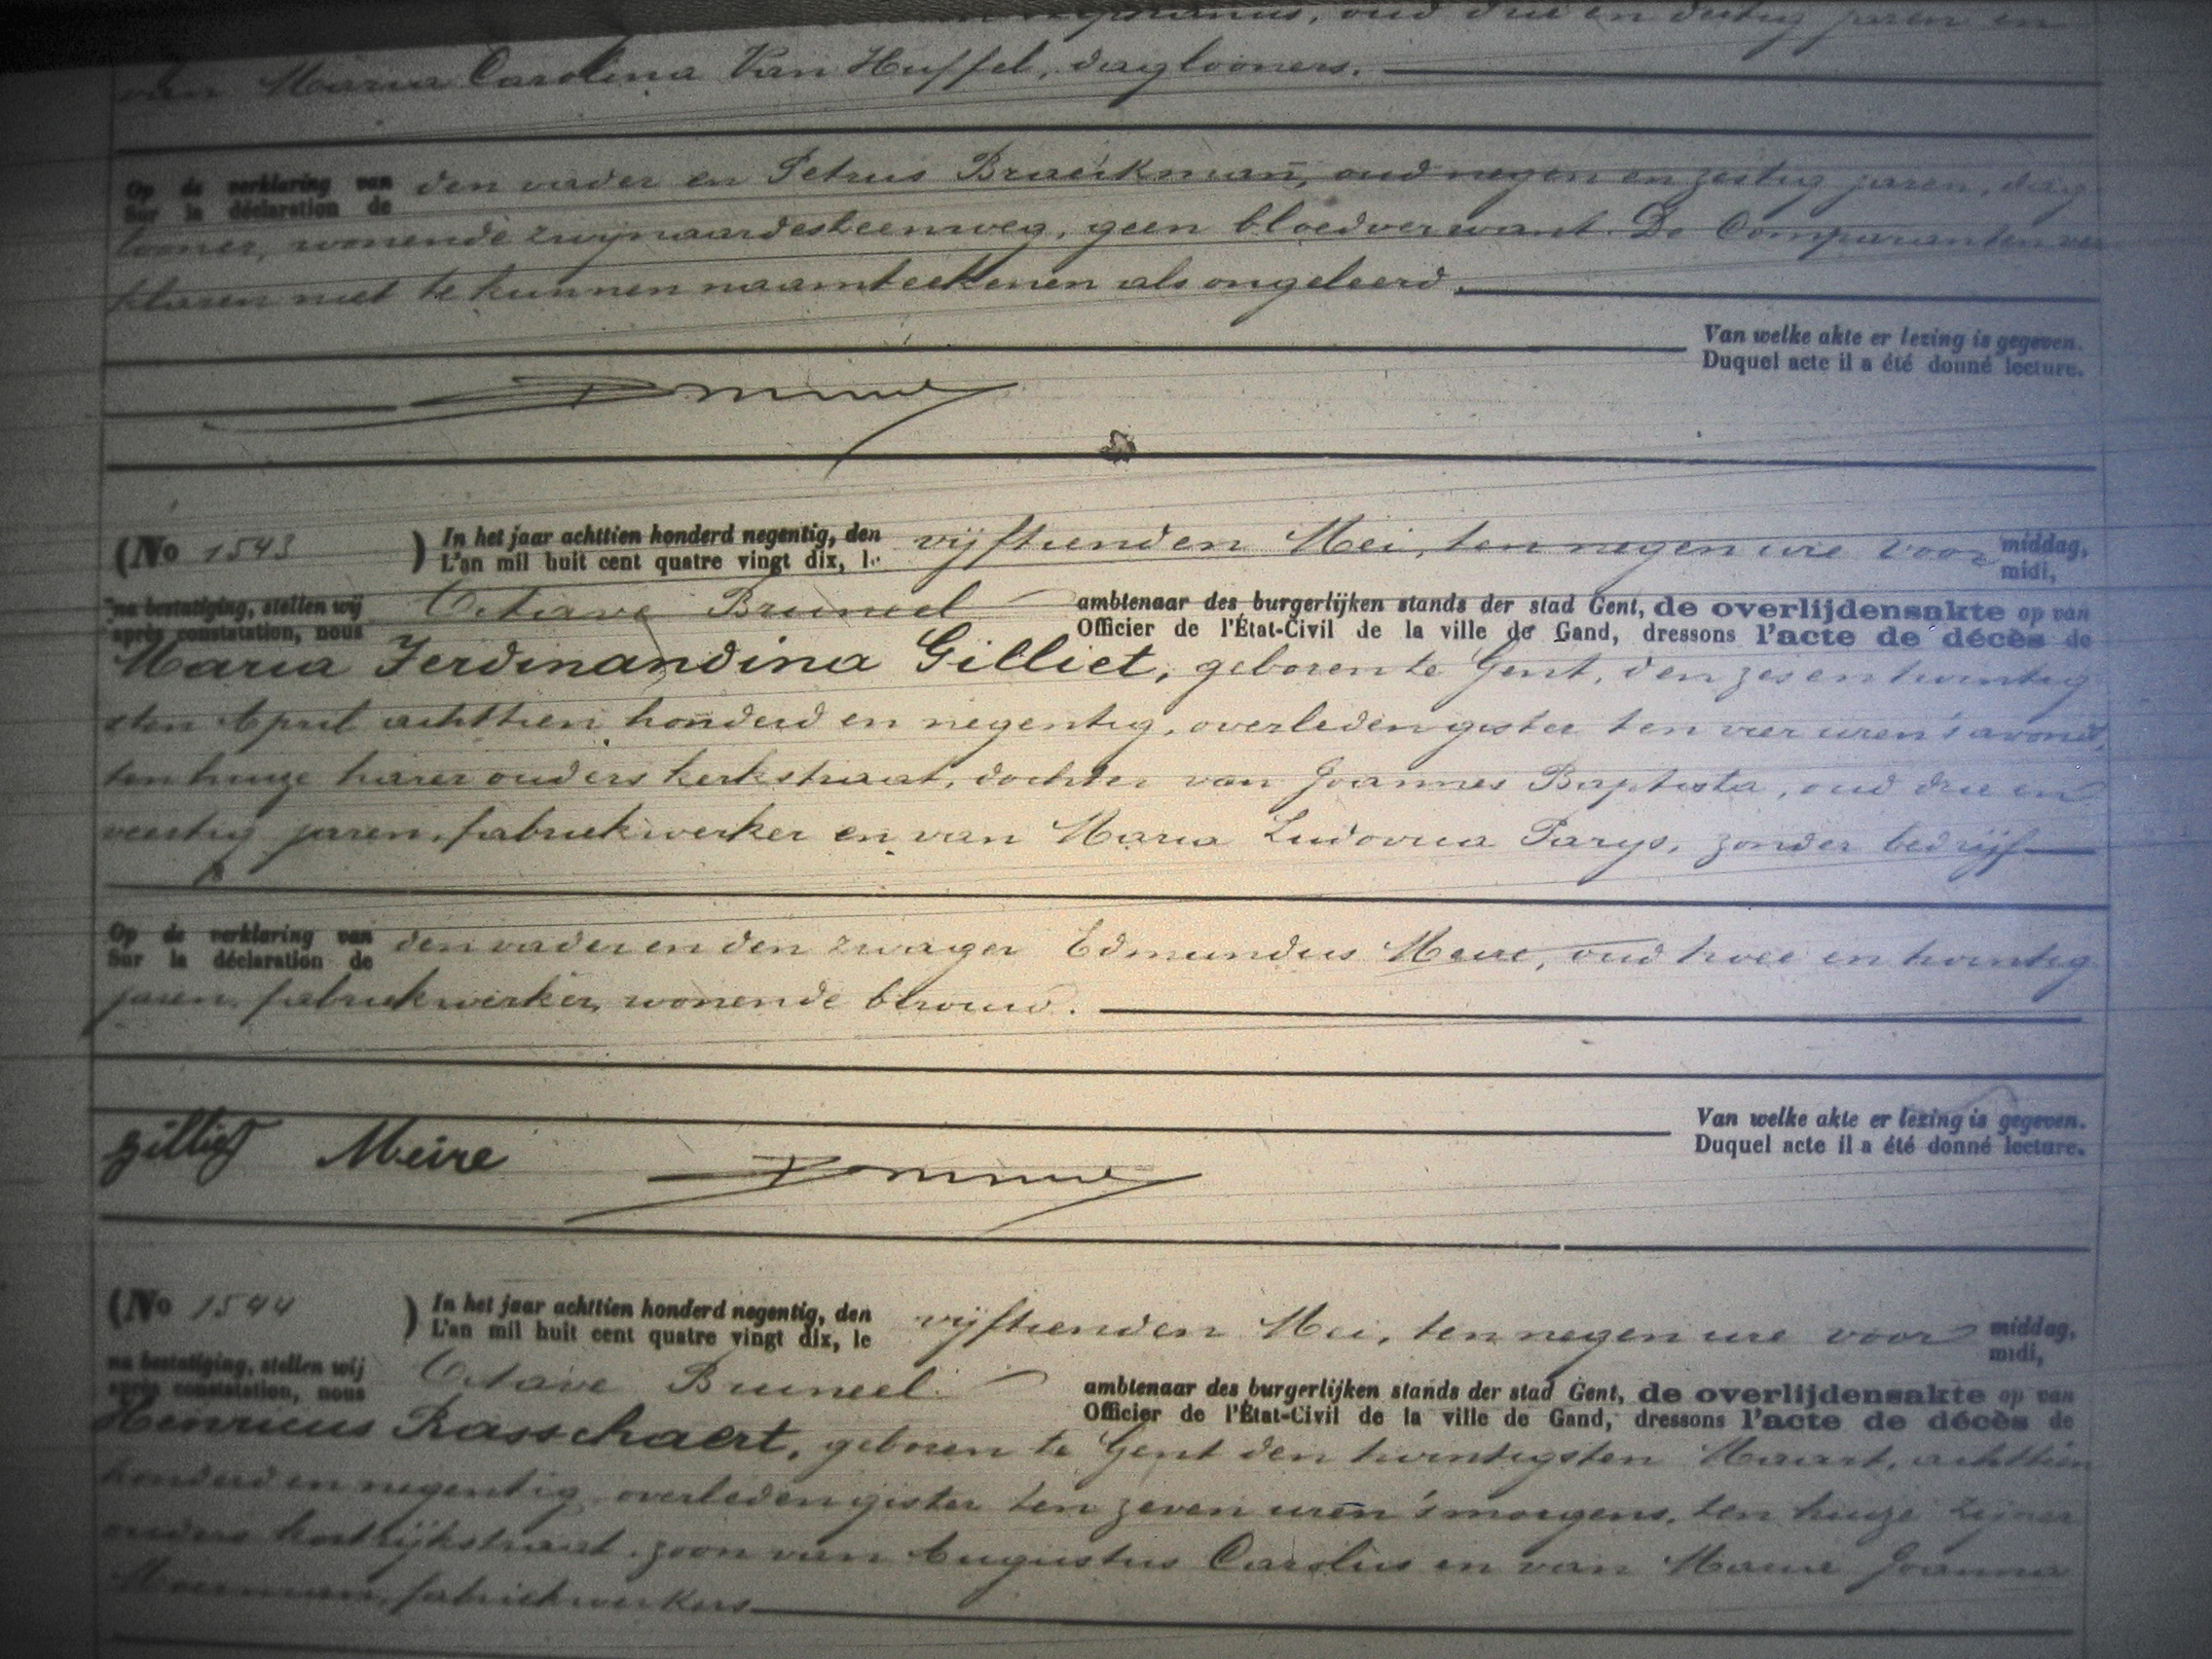 oud drie en dertig jaren en
van Maria Carolina Van Huffel, daglooners.
Op de verklaring van den vader en Petrus Braeckman, oud negen en zestig jaren, dag
Sur la déclaration de
looner, wonende zwijnaardesteenweg, geen bloedverwant. De Comparanten ver
klaren niet te kunnen naamteekenen als ongeleerd.
Van welke akte er lezing is gegeven.
Duquel acte il a été donné lecture.
(No 1543 ) In het jaar achttien honderd negentig, den vijftienden Mei, ten negen ure voor middag,
L'an mil huit cent quatre vingt dix, le midi,
na bestatiging, stellen wij Octave Bruneel ambtenaar des burgerlijken stands der stad Gent, de overlijdensakte op van
après constatation, nous Officier de l'État-Civil de la ville de Gand, dressons l'acte de décès de
Maria Ferdinandina Gilliet, geboren te Gent, den zes en twintig
sten April achttien honderd en negentig, overleden gister ten vier uren 's avonds,
ten huize harer ouders kerkstraat, dochter van Joannes Baptista, oud drie en
veertig jaren, fabriekwerker en van Maria Ludovica Parys, zonder bedrijf
Op de verklaring van den vader en den zwager Edmundus Meire, oud twee en twintig
Sur la déclaration de
jaren, fabriekwerker, wonende
Van welke akte er lezing is gegeven.
Duquel acte il a été donné lecture.
gilliet Meire
(No 1544 ) In het jaar achttien honderd negentig, den vijftienden Mei, ten negen ure voor middag,
L'an mil huit cent quatre vingt dix, le midi,
na bestatiging, stellen wij Octave Bruneel ambtenaar des burgerlijken stands der stad Gent, de overlijdensakte op van
après constatation, nous Officier de l'État-Civil de la ville de Gand, dressons l'acte de décès de
Henricus Rasschaert, geboren te Gent den twintigsten Maart, achttien
honderd en negentig, overleden gister ten zeven uren 's morgens, ten huize zijner
ouders kortrijkstraat, zoon van Augustus Carolus en van Maria Joanna
Moerman, fabriekwerkers